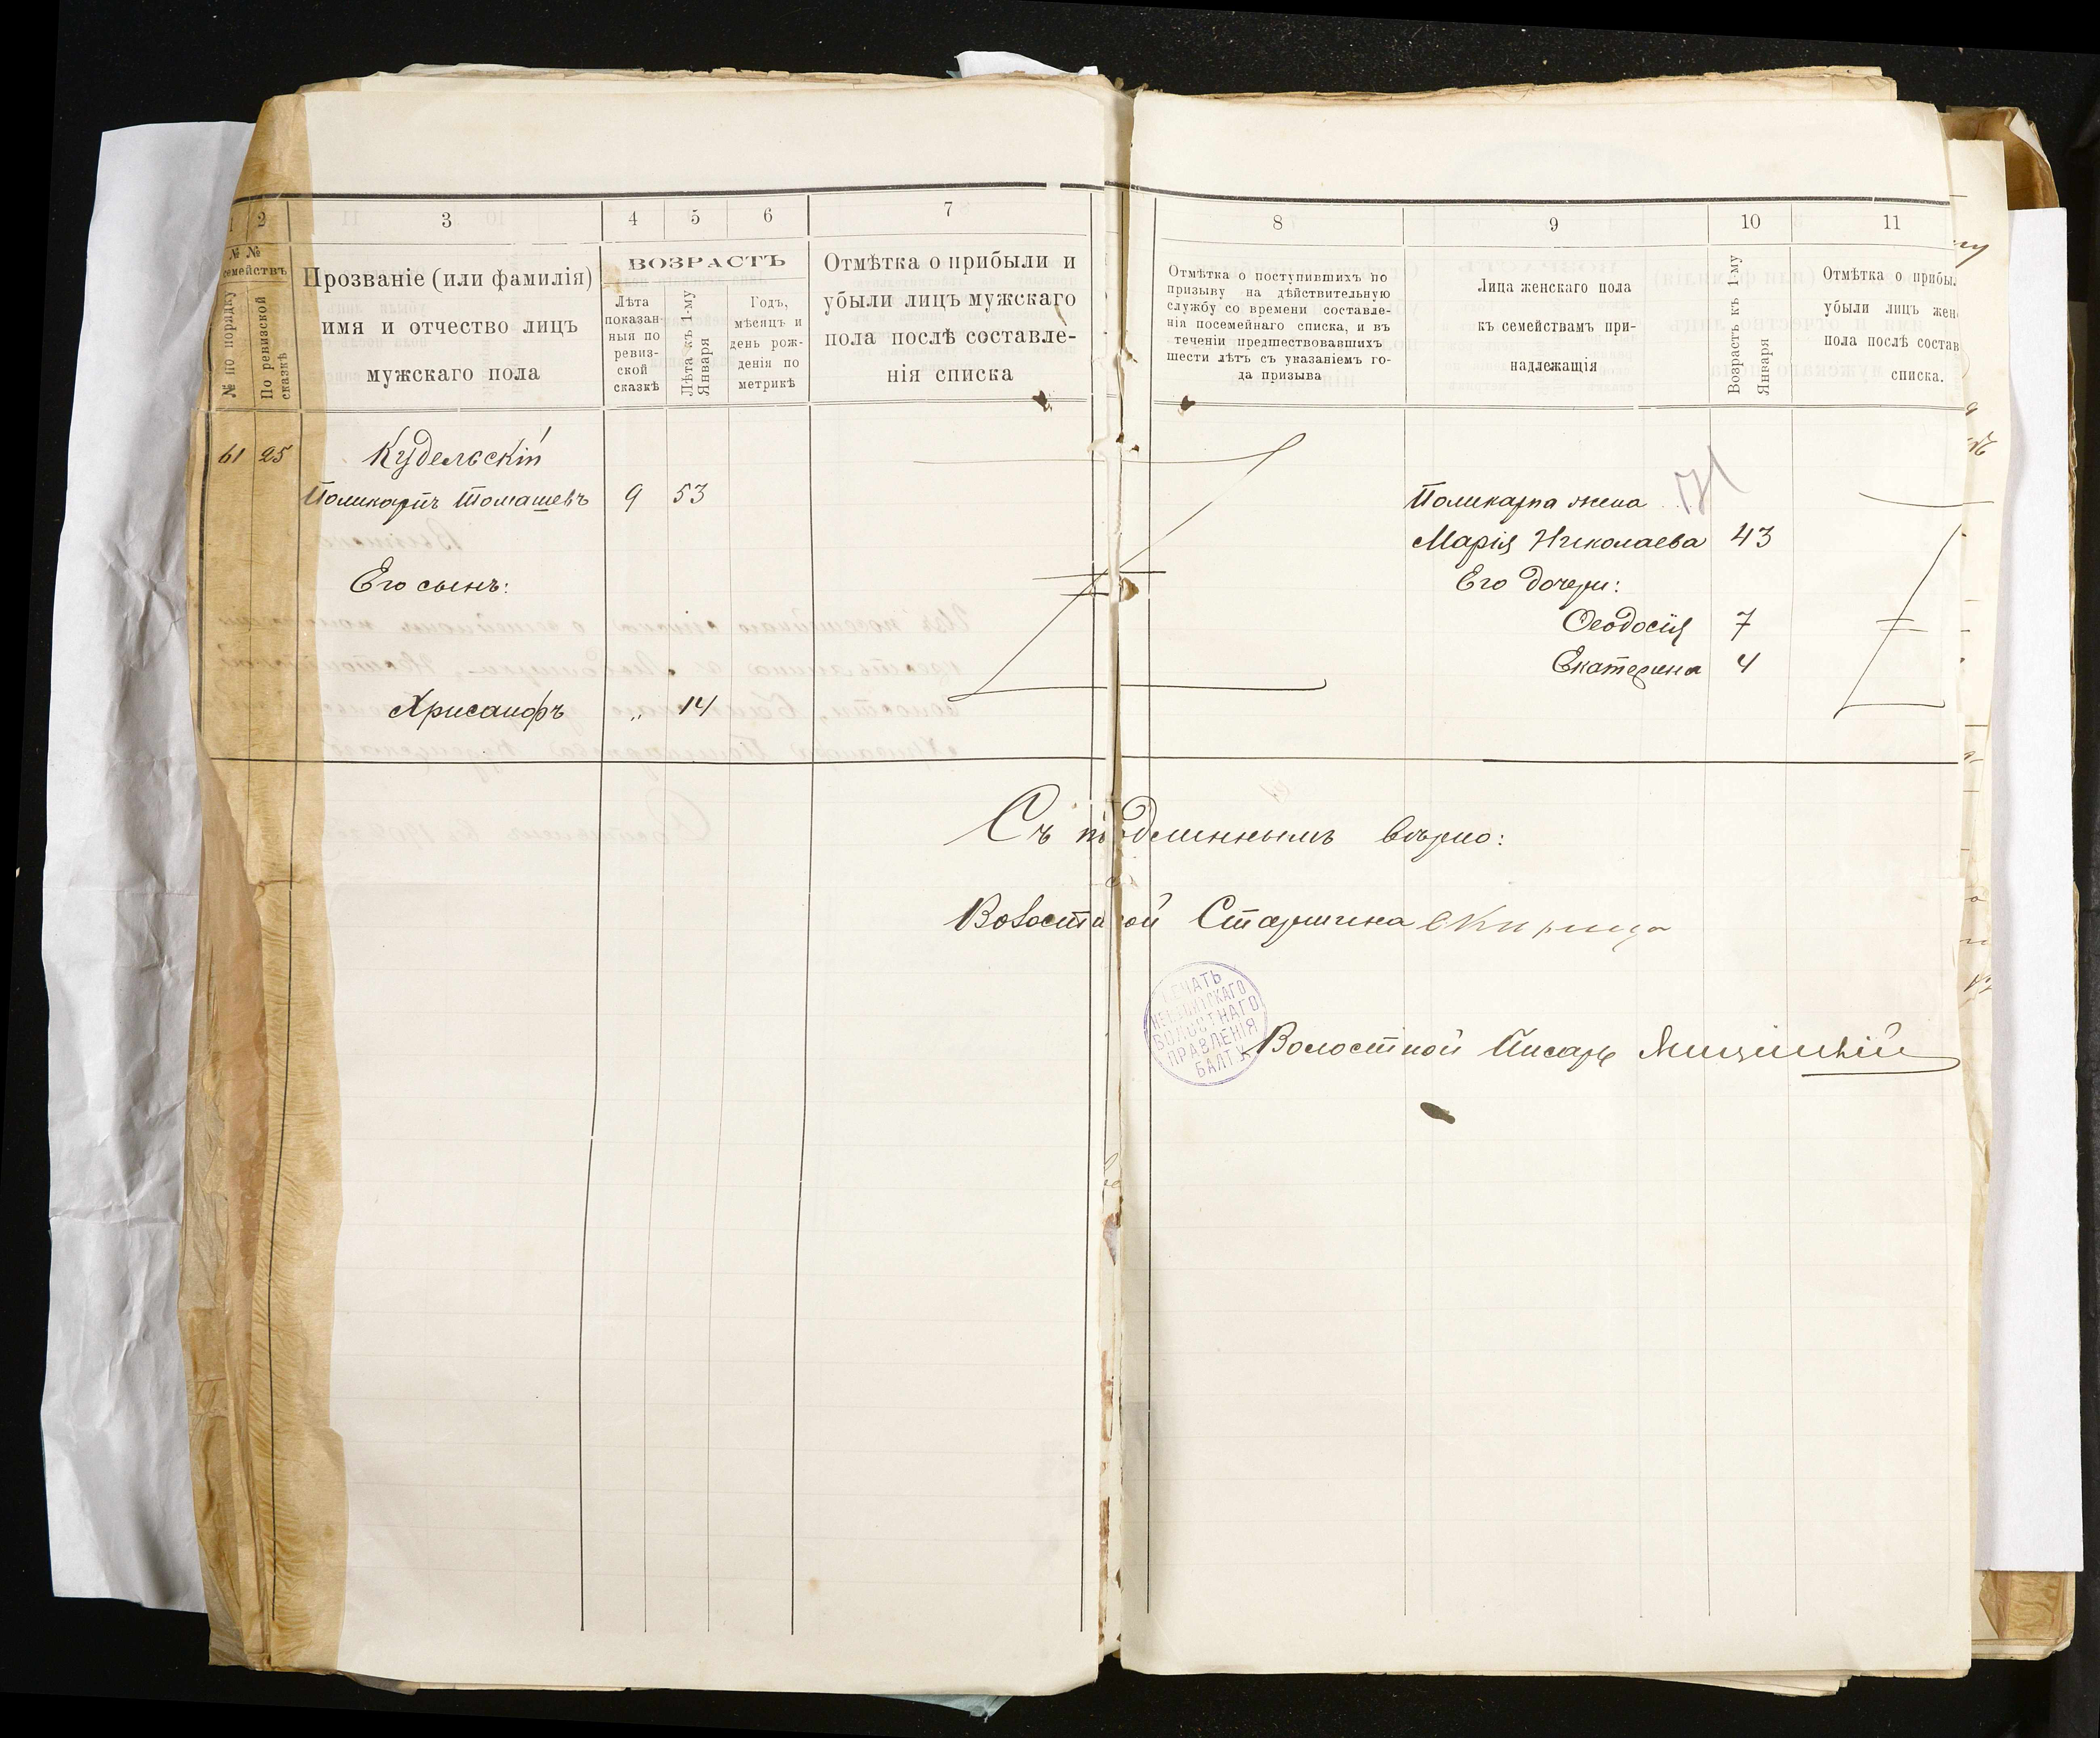 1 2 3 4 5 6 7
№ №
семействъ
№ по порядку
По ревизской
сказкѣ
Прозваніе (или фамилія)
имя и отчество лицъ
мужскаго пола
ВОЗРАСТЪ
Лѣта
показан-
ныя по
ревиз-
ской
сказкѣ
Лѣта къ 1-му
Января
Годъ,
мѣсяцъ и
день рож-
денія по
метрикѣ
Отмѣтка о прибыли и
убыли лицъ мужскаго
пола послѣ составле-
нія списка
61 25 Кудельскій
Поликарпъ Томашевъ 9 53
Его сынъ:
Хрисанфъ „ 14
8 9 10 11
Отмѣтка о поступившихъ по
призыву на дѣйствительную
службу со времени составле-
нія посемейнаго списка, и въ
теченіи предшествовавшихъ
шести лѣтъ съ указаніемъ го-
да призыва
Лица женскаго пола
къ семействамъ при-
надлежащія
Возрастъ къ 1-му
Января
Отмѣтка о прибы
убыли лицъ жен
пола послѣ состав
списка.
Поликарпа жена
Марія Николаева 43
Его дочери:
Ѳеодосія 7
Екатерина 4
Съ подлиннымъ вѣрно:
Волостной Старшина
ПЕЧАТЬ
ВОЛОСТНАГО
ПРАВЛЕНІЯ
БАЛТ. У.
Волостной Писарь